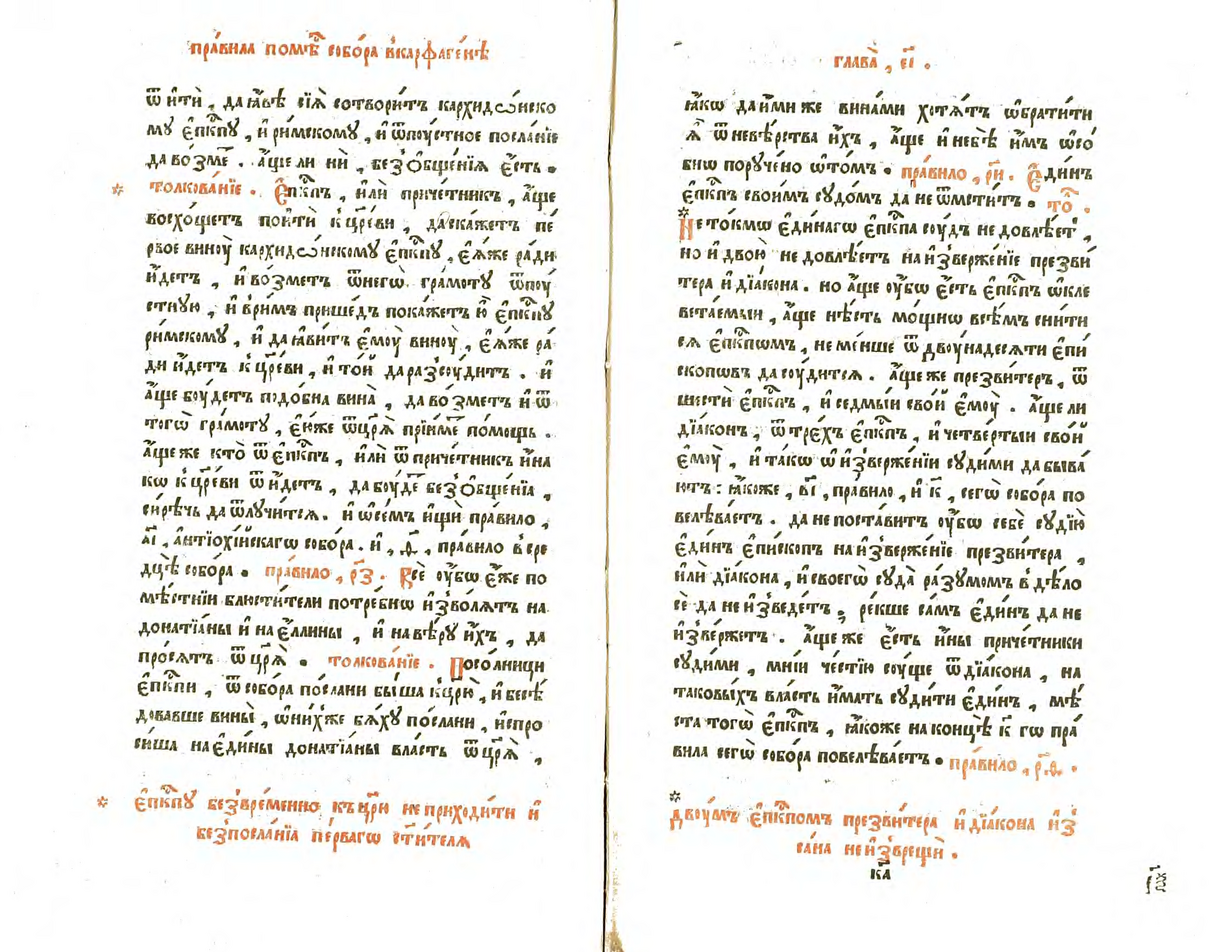 пра́вила помѣ́ⷭ҇ собо́ра вкарѳаге́нѣ
ѿитѝ , да ꙗ҆́вѣ сїѧ̀ сотвори́тъ кархидѡ́нско
му є҆пⷭ҇кпꙋ , и҆ ри́мскомꙋ , и҆ ѿпоу́стное посла́нїе
да во́змеⷮ . а҆́ще ли нѝ , безʼо́бще́нїѧ є҆́сть .
толкова́нїе . Є҆пⷭ҇кпъ , и҆лѝ приче́тникъ , а҆́ще
восхо́щетъ поитѝ к цр҃еви , да ска́жетъ пе́
рвое виноу̀ кархидѡ́нскомꙋ є҆пⷭ҇кпꙋ , є҆ѧ́же ра́ди
и҆́детъ , и҆ во́зметъ ѿнегѡ̀ гра́мотꙋ ѿпоу́
стнꙋю , и҆ в ри́мъ прише́дъ пока́жетъ ю҆̀ є҆пⷭ҇кпꙋ
ри́мскомꙋ , и҆ да ꙗ҆́витъ є҆моу̀ виноу̀ , є҆ѧ́же ра́
ди и҆́детъ к цр҃еви , и҆ то́и да разʼсоу́дитъ . и҆
а҆́ще боу́детъ подо́бна вина̀ , да во́зметъ и҆ ѿ
тогѡ̀ гра́мотꙋ , є҆ю́же ѿ цр҃ѧ прїи́меⷮ по́мощь .
а҆́ще же кто̀ ѿ є҆пⷭ҇кпъ , и҆лѝ ѿ приче́тникъ и҆́на
кѡ к цр҃еви ѿи́детъ , да боу́деⷮ безʼо́бще́нїа ,
си́рѣчь да ѿлꙋчи́тсѧ . и҆ ѡ҆се́мъ и҆щѝ пра́вило ,
а҃і , а҆нтїохі́искагѡ собо́ра . и҆ , ѳ҃ , пра́вило в сре
дцѣ̀ собо́ра . пра́вило , р҃з . Всѐ оу҆́бѡ є҆́же по
мѣ́стнїи блюсти́тели потре́бнѡ и҆зʼво́лѧтъ на
донатїа́ны и҆ на є҆́ллины , и҆ на вѣ́рꙋ и҆́хъ , да
про́сѧтъ ѿ цр҃ѧ̀ . толкова́нїе . Посо́лници
є҆пⷭ҇кпи , ѿ собо́ра по́слани бы́ша к цр҃ю̀ , и҆ бесѣ́
довавше вины̀ , ѡ҆ни́хʼже бѧ́хꙋ по́слани , и҆спро
си́ша на є҆ди́ны донатїа́ны вла́сть ѿ цр҃ѧ̀ ,
* є҆пⷭ҇кпꙋ безʼвре́меннѡ къ цр҃ю не приходи́ти и҆
безʼпосла́нїа пе́рвагѡ ст҃и́телѧ
глава̀ , є҃і .
ꙗ҆́кѡ да и҆́ми же вина́ми хотѧ́тъ ѡ҆брати́ти
ѧ҆̀ ѿ невѣ́рства и҆́хъ , а҆́ще и҆ небѣ̀ и҆́мъ ѡ҆со́
бнѡ порꙋче́но ѡ҆то́мъ . пра́вило , р҃и . Є҆ди́нъ
є҆пⷭ҇кпъ свои́мъ сꙋдо́мъ да не ѿмести́тъ . тоⷧ҇ .
* Не то́кмѡ є҆ди́нагѡ є҆пⷭ҇кпа соу́дъ не довлѣ́етъ ,
но и҆ двою̀ не довлѣ́етъ на и҆зʼверже́нїе презви́
тера и҆ дїа́кона . но а҆́ще оу҆́бѡ є҆́сть є҆пⷭ҇кпъ ѡ҆кле
вета́емыи , а҆́ще нѣ́сть мо́щнѡ всѣ́мъ сни́ти
сѧ є҆пⷭ҇кпѡмъ , не ме́нше ѿ двоу́надесѧти є҆пи́
скопѡвъ да соу́дитсѧ . а҆́ще же презви́теръ , ѿ
шестѝ є҆пⷭ҇кпъ , и҆ седмы́и сво́й є҆моу̀ . а҆́ще ли
дїа́конъ , ѿ тре́хъ є҆пⷭ҇кпъ , и҆ четве́ртыи сво́й
є҆моу̀ , и҆ та́кѡ ѡ҆ и҆зʼверже́нїи сꙋди́ми да быва́
ютъ : ꙗ҆́коже , в҃і , пра́вило , и҆ к҃ , сегѡ̀ собо́ра по
велѣва́етъ . да не поста́витъ оу҆́бѡ себѐ сꙋдїю̀
є҆ди́нъ є҆пи́скопъ на и҆зʼверже́нїе презви́тера ,
и҆лѝ дїа́кона , и҆ своегѡ̀ сꙋда̀ ра́зꙋмомъ в дѣ́ло
сѐ да не и҆зʼведе́тъ , ре́кше са́мъ є҆ди́нъ да не
и҆зʼве́ржетъ . а҆́ще же є҆́сть и҆́ны приче́тники
сꙋди́ми , мнїи че́стїю соу́ще ѿ дїа́кона , на
таковы́хъ вла́сть и҆́мать сꙋди́ти є҆ди́нъ , мѣ́
ста тогѡ̀ є҆пⷭ҇кпъ , ꙗ҆́коже на концѣ̀ к҃ гѡ пра́
вила сегѡ̀ собо́ра повелѣва́етъ . пра́вило , р҃ѳ .
* двоу́мъ є҆пⷭ҇кпомъ презви́тера и҆ дїа́кона и҆зʼ
са́на не и҆зʼврещѝ .
к҃а